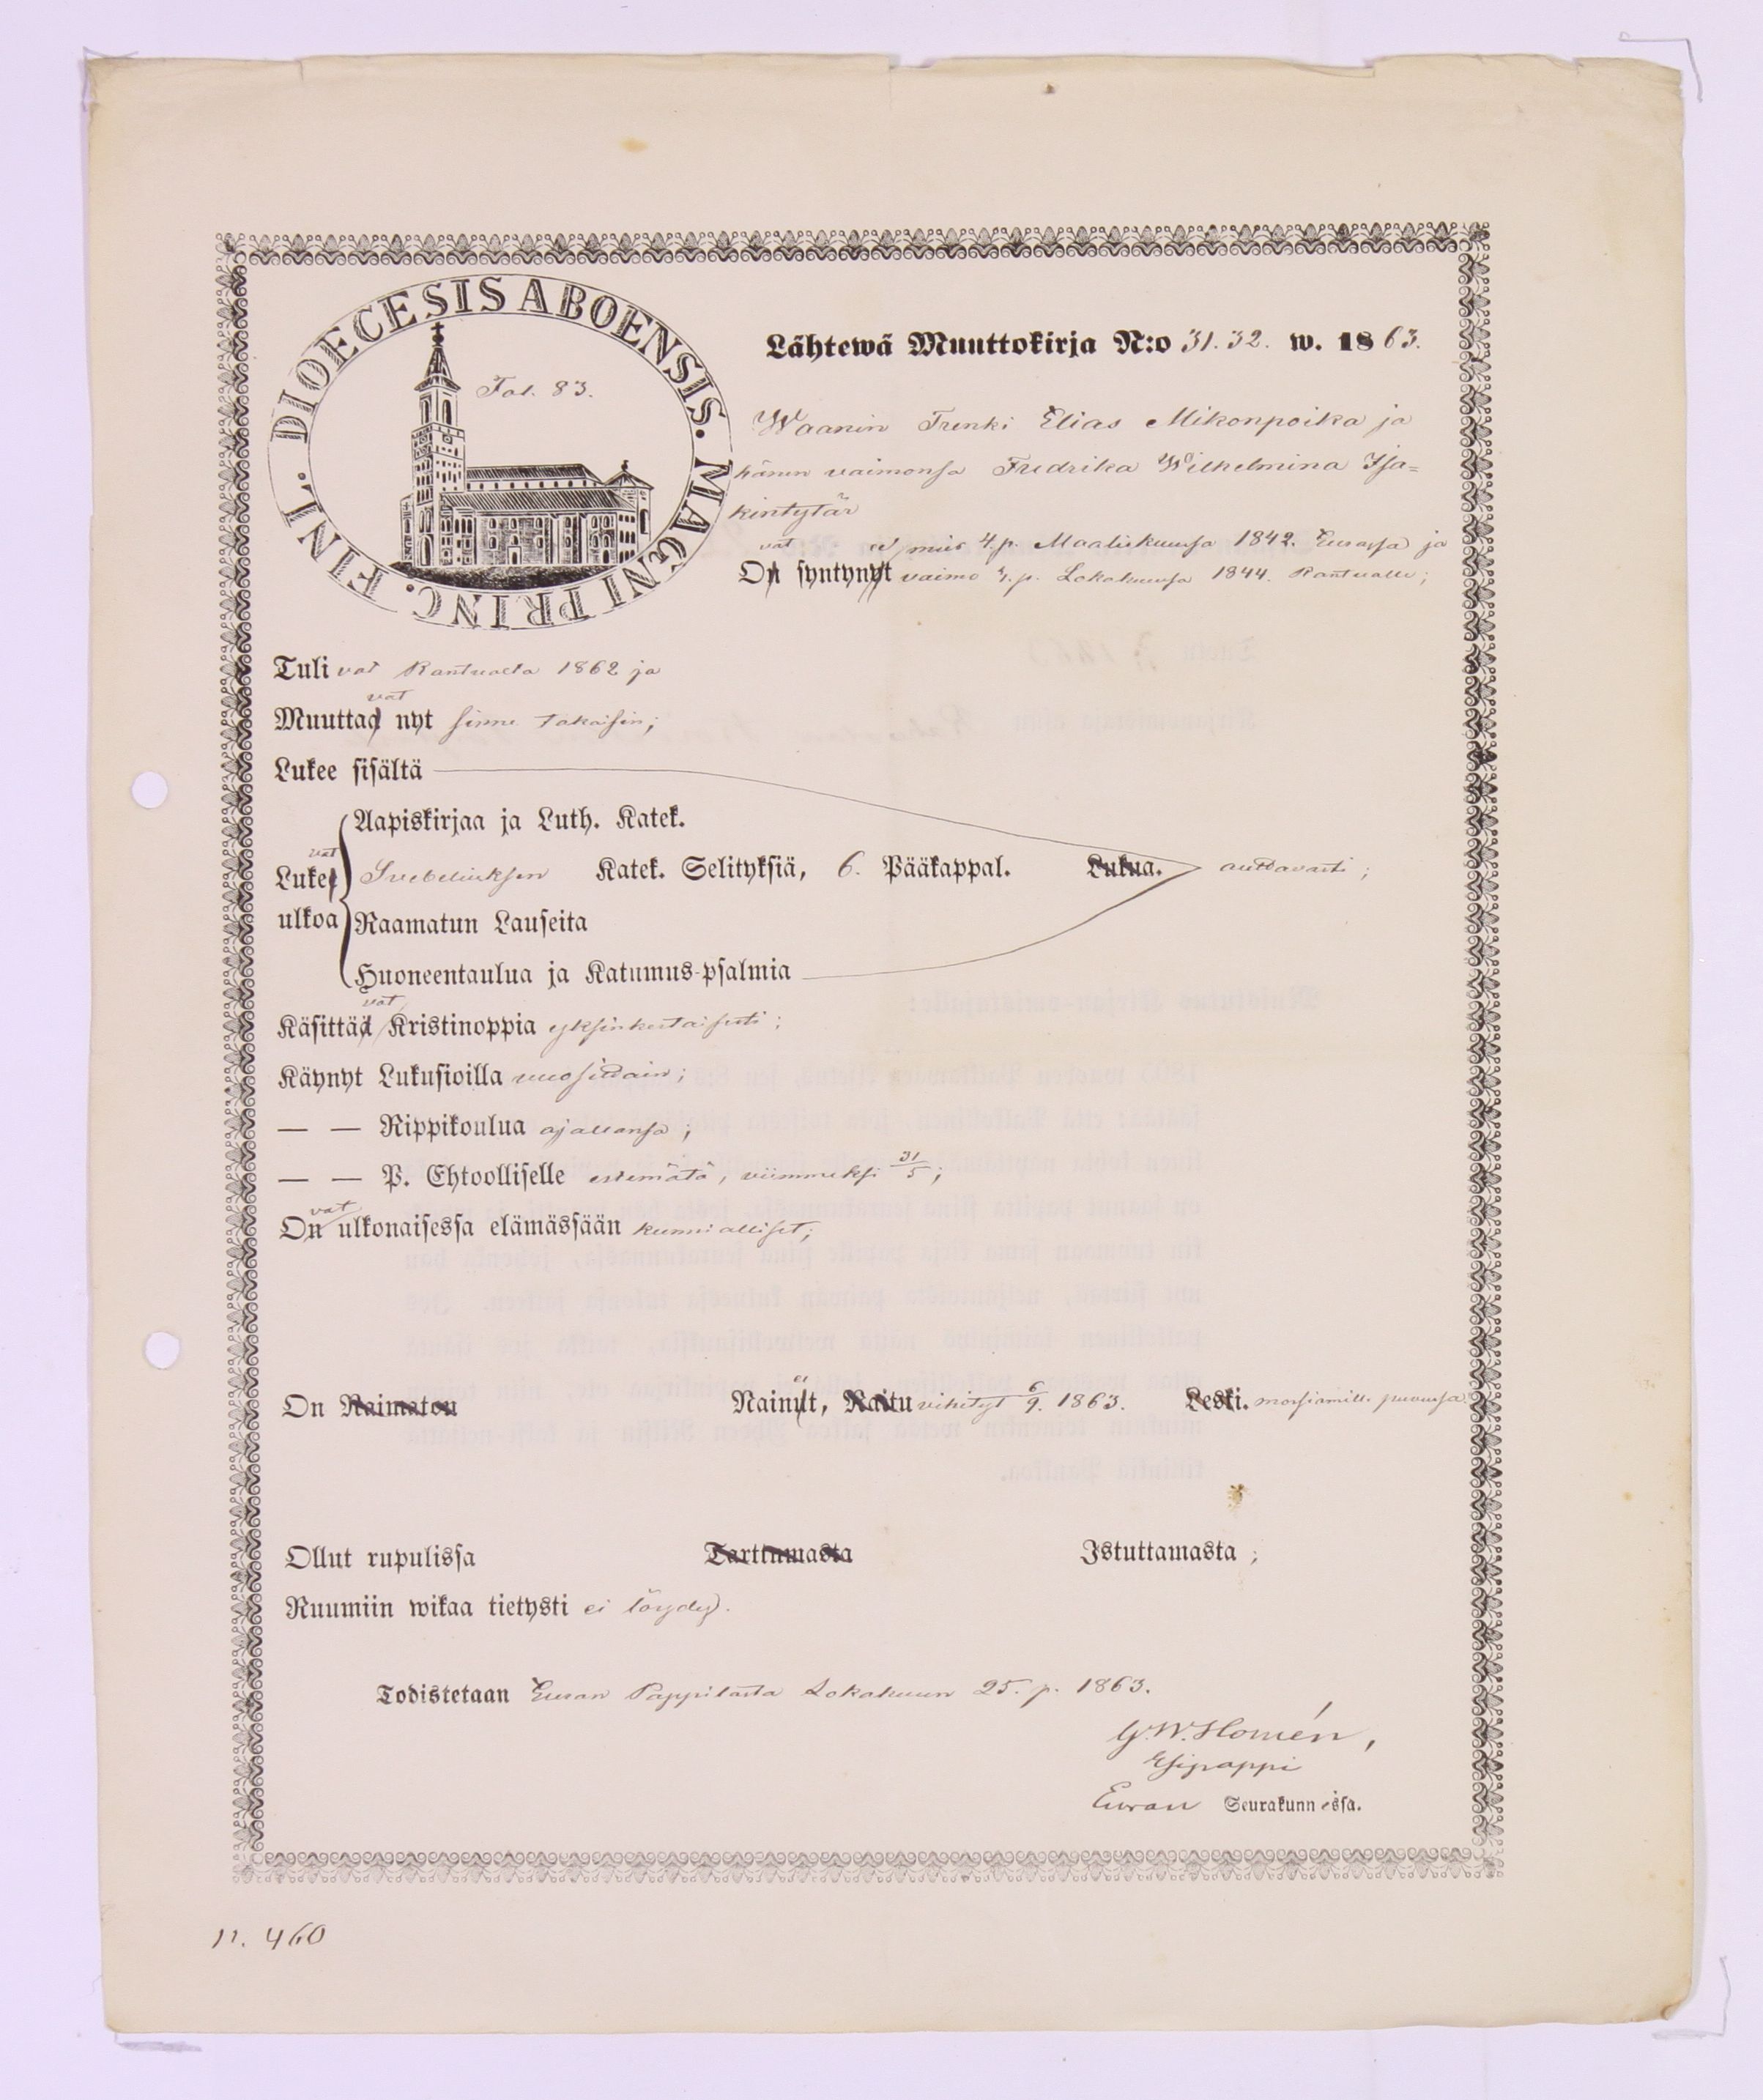 DIOECESIS ABOENSIS. MAGNI PRINC. FINL.
Fol. 83.
Lähtewä Muuttokirja N:o 31.32. w. 1863.
Waanin Trenki Elias Mikonpoika ja
hänen vaimonsa Fredrika Wilhelmina Isa=
kintytär
vat et mies 4.p. Maaliskuussa 1842. Eurassa ja
On syntynyt vaimo 4.p. Lokakuussa 1844. Kantvalle;
Tulivat Kantvalta 1862 ja
vat
Muuttaa nyt sinne takaisin;
Lukee sisältä
Aapiskirjaa ja Luth. Katek.
vat
Lukee Svebeliuksen Katek. Selityksiä, 6. Pääkappal. Lukua. auttavasti;
ulkoa Raamatun Lauseita
Huoneentaulua ja Katumus-psalmia
vat
Käsittää Kristinoppia yksinkertaisesti;
Käynyt Lukusioilla vuosittain;
— — Rippikoulua ajallansa;
— — P. Ehtoolliselle estemätä, viimmeksi 31/5;
vat
On ulkonaisessa elämässään kunnialliset;
On Naimaton Nainut, Naitu vihityt 6/9. 1863. Leski. morsiamill. puvussa
Ollut rupulissa Tarttumasta Istuttamasta;
Ruumiin wikaa tietysti ei löydy.
Todistetaan Euran Pappilasta Lokakuun 25. p. 1863.
G.W. Homén,
Esipappi
Euran Seurakunnassa.
n. 460